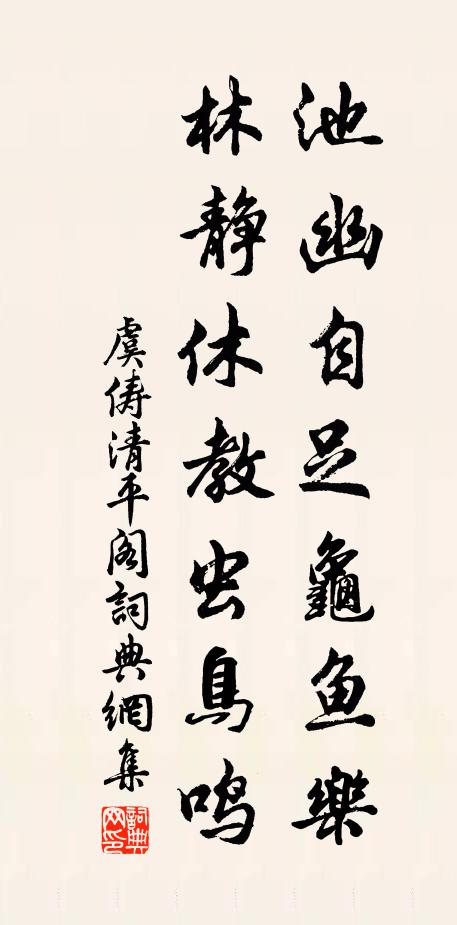 池幽自足龜鱼樂
林静休教虫鳥鸣
虞儔清平阁詞典網集
詞典網印